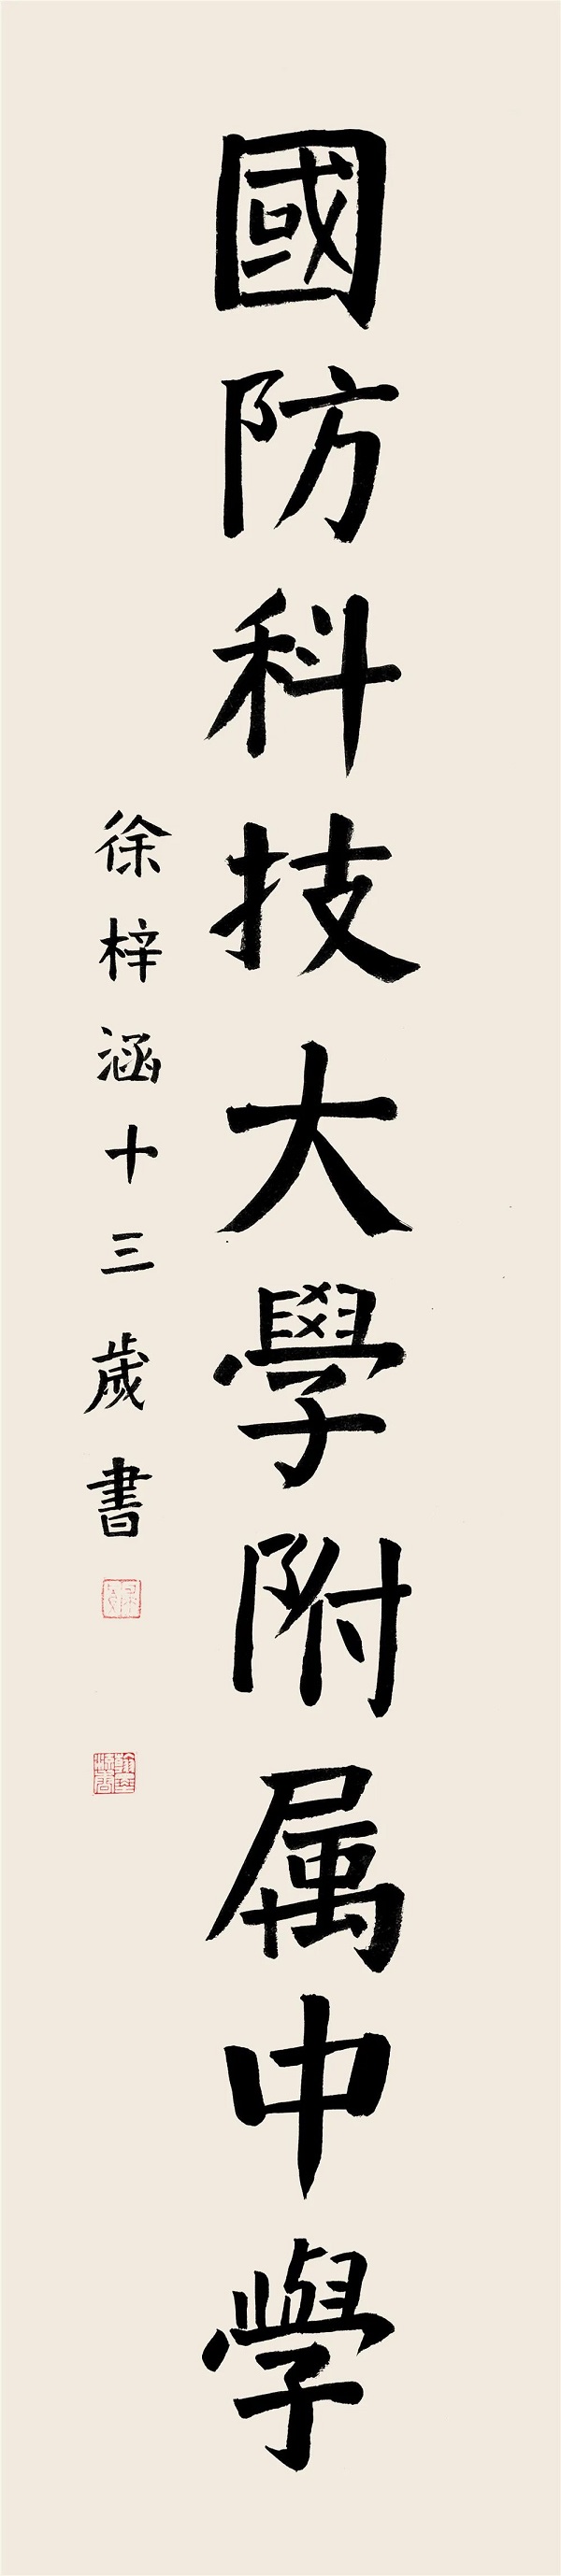 國防科技大學附属中學
徐梓涵十三歲書